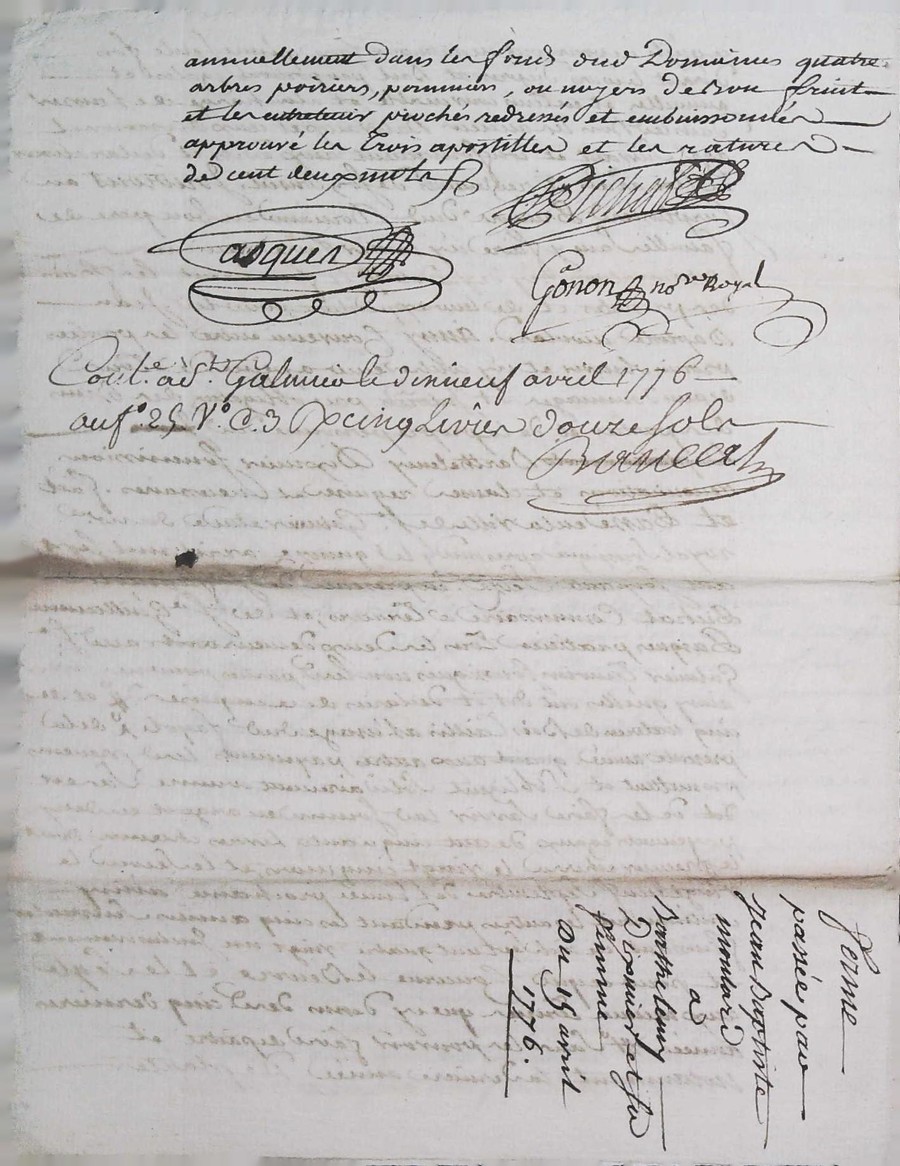 annuellement dans les fonds dud Domaines quatre
arbres poiriers, pommiers, ou noyers de bon fruit
et les entretenir piochés redressés et embuissonnés
approuvé les trois apostilles et les ratures
de cent deux mots
asquer
Gonon no.re Royal
Coul.e a S.t Galmier le dixneuf avril 1776
au f.o 25 V.o C. 3 R cinq Livres douze sols
ferme
passée par
Jean Baptiste
montard
a
Barthelemy
et sa
femme
Du 15 avril
1776.